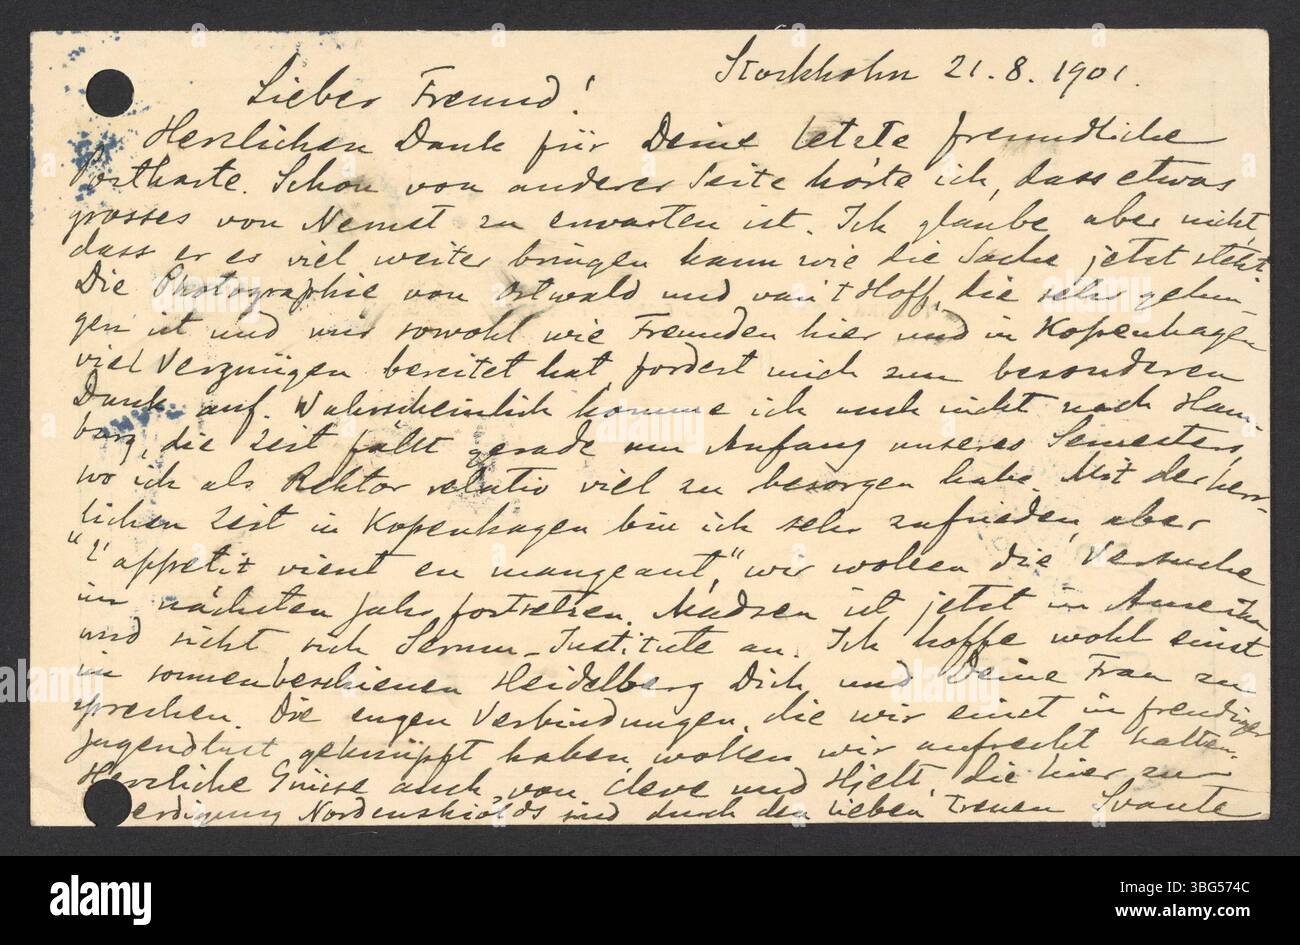 Stockholm 21.8.1901.
Lieber Freund!
Herzlichen Dank für Deine letzte freundliche
Postkarte. Schon von anderer Seite hörte ich, dass etwas
grosses von Nernst zu erwarten ist. Ich glaube aber nicht,
dass er es viel weiter bringen kann wie die Sache jetzt steht.
Die Photographie von Ostwald und van't Hoff, die sehr gelun-
gen ist und mir sowohl wie Freunden hier und in Kopenhagen
viel Verznügen bereitet hat fordert mich zum besonderen
Dank auf. Wahrscheinlich komme ich auch nicht nach Ham
burg, die Zeit fällt gerade am Anfang unseres Semesters,
wo ich als Rektor relativ viel zu besorgen habe. Mit der herz-
lichen Zeit in Kopenhagen bin ich sehr zufrieden, aber
"l'appetit vient en mangeant," wir wollen die Versuche
im nächsten Jahr fortsetzen. Madsen ist jetzt in Amerika
und sieht sich Serum-Institute an. Ich hoffe wohl einst
im sonnenbeschienen Heidelberg Dich und Deine Frau zu
sprechen. Die engen Verbindungen, die wir einst in freudiger
Jugendlust geknüpft haben wollen wir aufrecht halten.
Herzliche Grüsse auch von Cleve und Hjelt, die hier zur
erdigung Nordenskiölds sind durch den lieben, treuen Svante
alamy
Image ID: 3BG574C
www.alamy.com